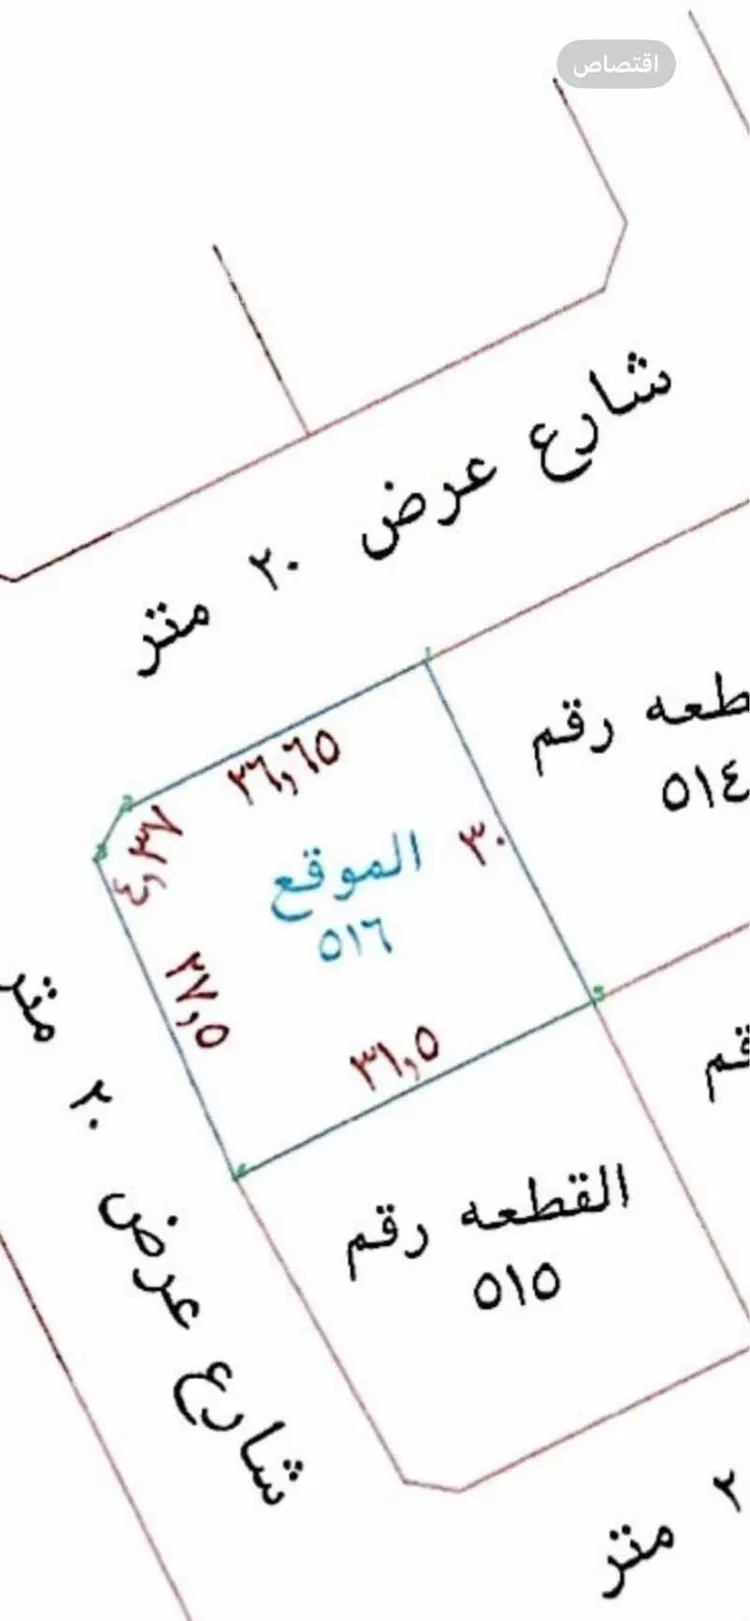 اقتصاص
شارع عرض ٢٠ متر
٢٦,٦٥
قطعه رقم
٥١٤
٤,٣٧
٣٠
الموقع
٥١٦
٢٧,٥
٣١,٥
شارع عرض ٢٠ متر
القطعه رقم
٥١٥
متر